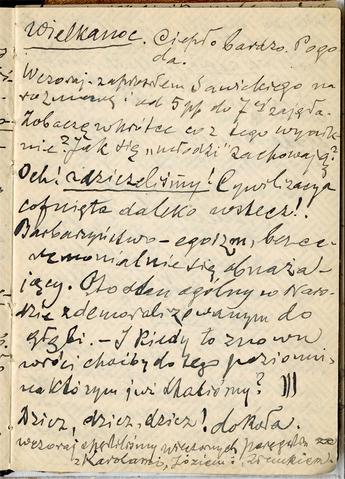 Wielkanoc. Ciepło bardzo. Pogo-
da.
Wczoraj zaprosiłem Sawickiego na
rozmowę i od 5 pp do 7 zajęła.
Zobaczę wkrótce co z tego wynik-
nie? Jak się „młodzi" zachowają?
Och! zdzieczeliśmy! Cywilizacja
cofnięta daleko wstecz!.
Barbarzyństwo – egoizm, bez ce-
remonialnie się obnaża-
jący. Oto stan ogólny w Naro-
dzie zdemoralizowanym do
głębi. – I kiedy to znowu
wróci choćby do tego poziomu,
na którym już staliśmy?
Dzicz, dzicz, dzicz! dokoła.
wczoraj spędziliśmy wieczorem
z Karolami, Józiem i